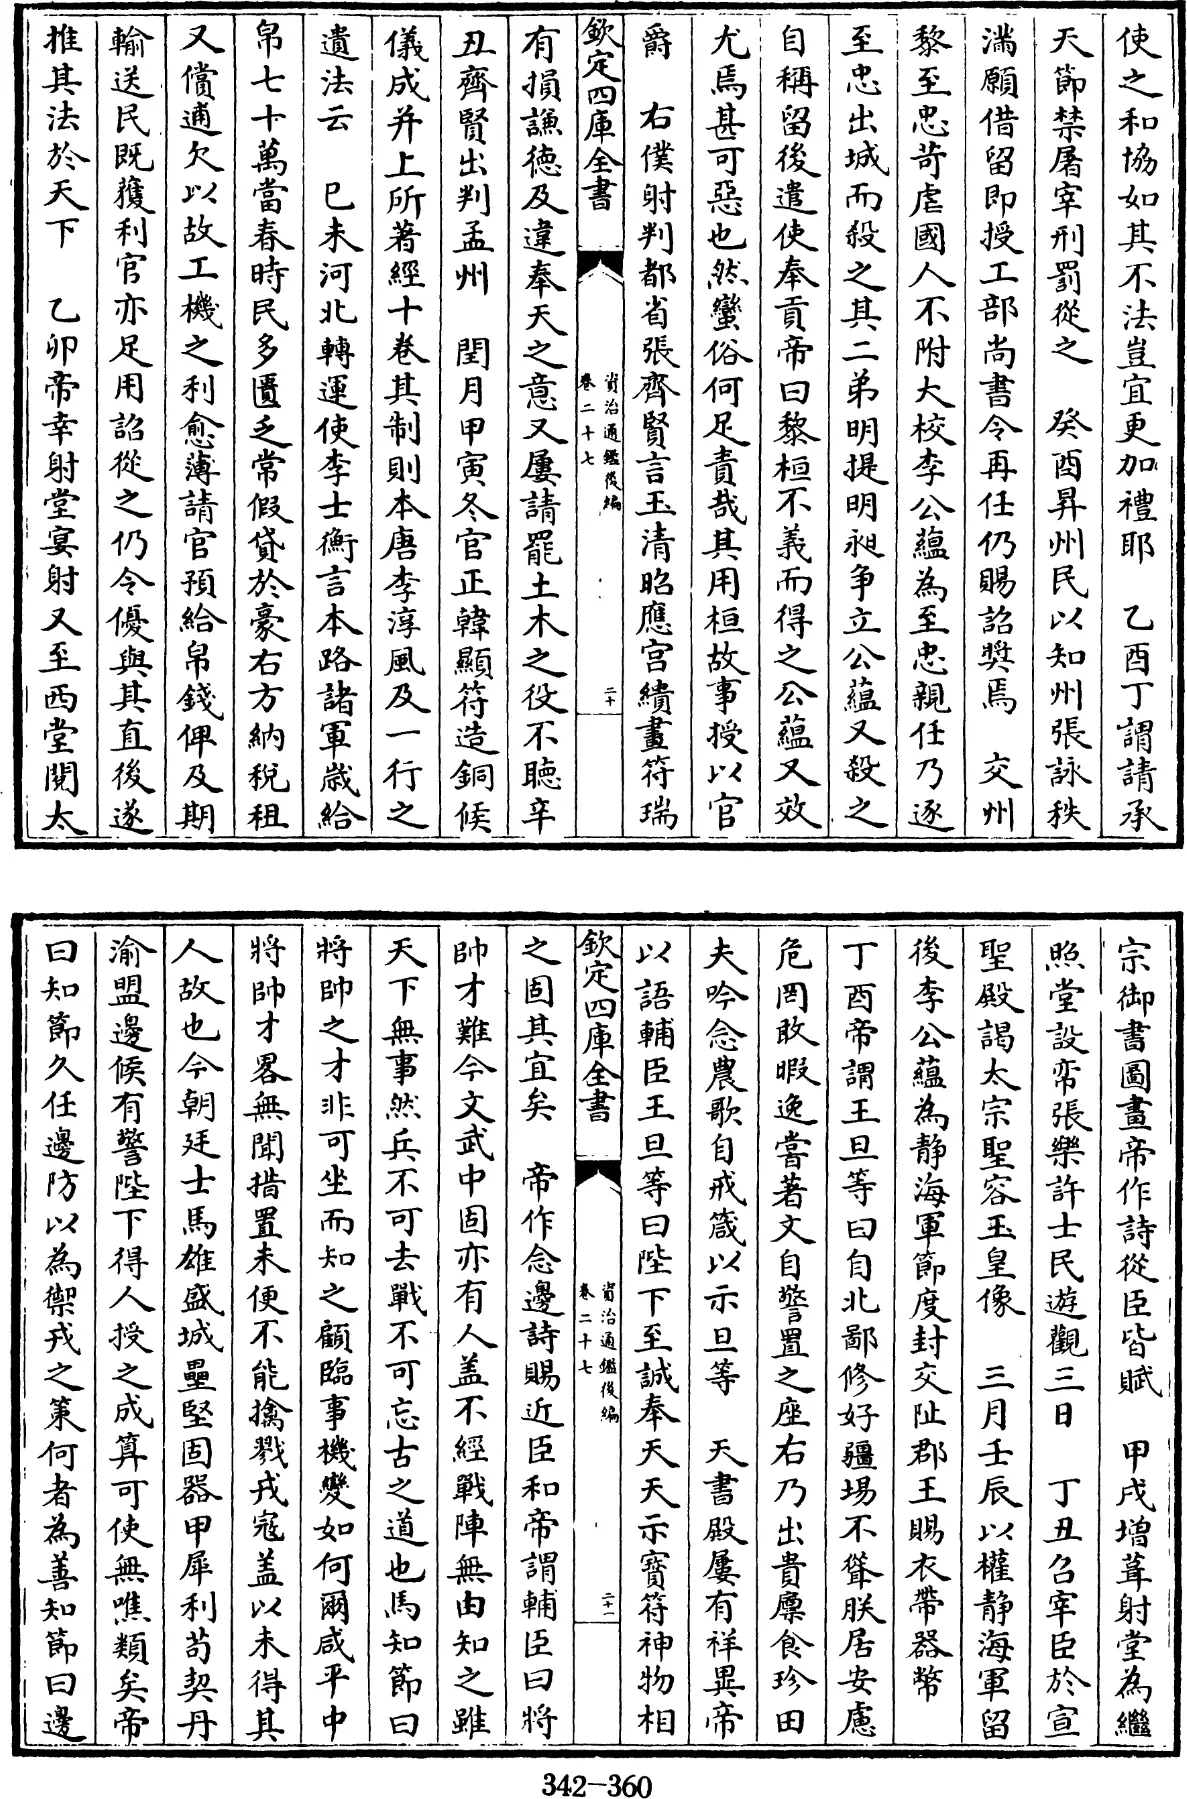 使之和協如其不法豈宜更加禮耶　乙酉丁謂請承
天節禁屠宰刑罰從之　癸酉昇州民以知州張詠秩
滿願借留即授工部尚書令再任仍賜詔奬焉　交州
黎至忠苛虐國人不附大校李公蘊為至忠親任乃逐
至忠出城而殺之其二弟明提明昶争立公蘊又殺之
自稱留後遣使奉貢帝曰黎桓不義而得之公蘊又效
尤焉甚可惡也然蠻俗何足責哉其用桓故事授以官
爵　右僕射判都省張齊賢言玉清昭應宫繢畫符瑞
欽定四庫全書　資治通鑑後編卷二十七　二十
有損謙德及違奉天之意又屢請罷土木之役不聽辛
丑齊賢出判孟州　閏月甲寅冬官正韓顯符造銅候
儀成并上所著經十卷其制則本唐李淳風及一行之
遺法云　巳未河北轉運使李士衡言本路諸軍歲給
帛七十萬當春時民多匱乏常假貸於豪右方納稅租
又償逋欠以故工機之利愈薄請官預給帛錢俾及期
輸送民既獲利官亦足用詔從之仍令優與其直後遂
推其法於天下　乙卯帝幸射堂宴射又至西堂閱太
宗御書圖畫帝作詩從臣皆賦　甲戌增葺射堂為繼
照堂設帟張樂許士民遊觀三日　丁丑召宰臣於宣
聖殿謁太宗聖容玉皇像　三月壬辰以權静海軍留
後李公蘊為静海軍節度封交阯郡王賜衣帶器幣
丁酉帝謂王旦等曰自北鄙修好疆埸不聳朕居安慮
危罔敢暇逸嘗著文自警置之座右乃出貴廪食珍田
夫吟念農歌自戒箴以示旦等　天書殿屢有祥異帝
以語輔臣王旦等曰陛下至誠奉天天示寶符神物相
欽定四庫全書　資治通鑑後編卷二十七　二十一
之固其宜矣　帝作念邊詩賜近臣和帝謂輔臣曰將
帥才難今文武中固亦有人盖不經戰陣無由知之雖
天下無事然兵不可去戰不可忘古之道也馬知節曰
將帥之才非可坐而知之顧臨事機變如何爾咸平中
將帥才畧無聞措置未便不能擒戮戎寇盖以未得其
人故也今朝廷士馬雄盛城壘堅固器甲犀利苟契丹
渝盟邊候有警陛下得人授之成算可使無噍類矣帝
曰知節久任邊防以為禦戎之策何者為善知節曰邊
342-360